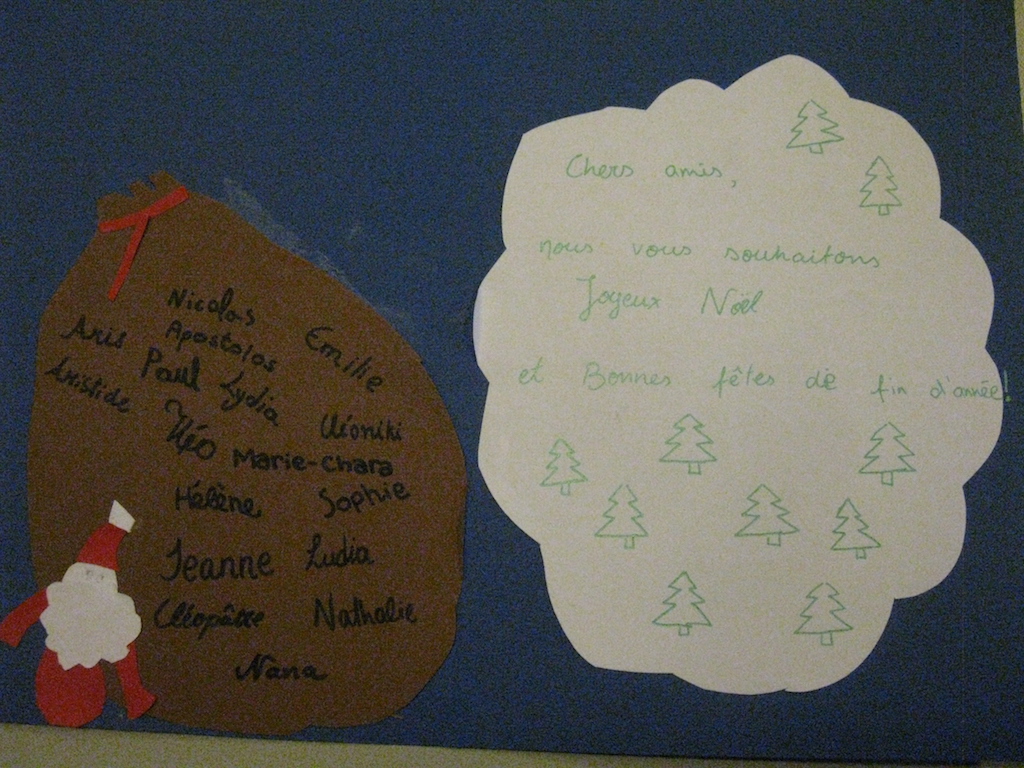 Nicolas
Apostolos
Emilie
Aris
Paul
Lydia
Aristide
Cléoniki
Néo
Marie-Chara
Hélène
Sophie
Jeanne
Ludia
Cléopâtre
Nathalie
Nana
Chers amis,
nous vous souhaitons
Joyeux Noël
et Bonnes fêtes de fin d'année!